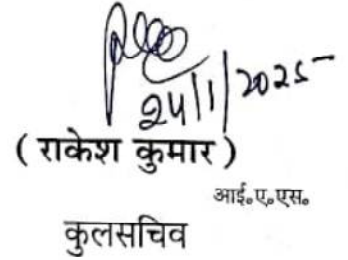 24/1/2025
( राकेश कुमार )
आई॰ए॰एस॰
कुलसचिव